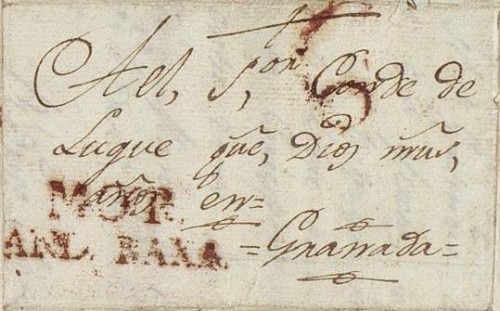 Al, S,or Conde de
Luque que, Dios mus,
años en=
=Granada=
MOR.
AND. BAXA.
6